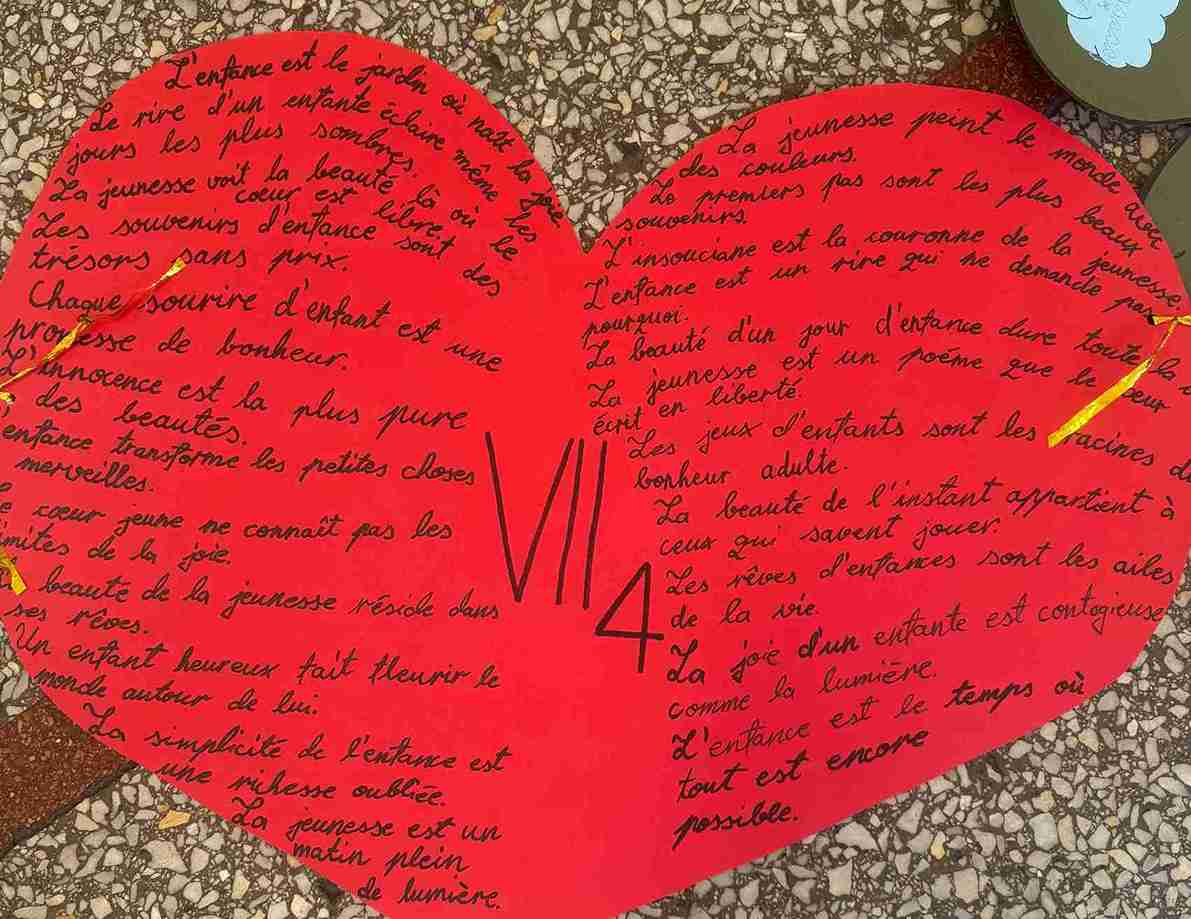 L'enfance est le jardin où naît la joie
Le rire d'un enfante éclaire même les
jours les plus sombres.
La jeunesse voit la beauté là où le
cœur est libre.
Les souvenirs d'enfance sont des
trésors sans prix.
Chaque sourire d'enfant est une
promesse de bonheur.
L'innocence est la plus pure
des beautés.
enfance transforme les petites choses
merveilles.
cœur jeune ne connaît pas les
limites de la joie.
beauté de la jeunesse réside dans
ses rêves.
Un enfant heureux fait fleurir le
monde autour de lui.
La simplicité de l'enfance est
une richesse oubliée.
La jeunesse est un
matin plein
de lumière.
VII
4
La jeunesse peint le monde avec
des couleurs.
Le premiers pas sont les plus beaux
souvenirs.
L'insouciane est la couronne de la jeunesse.
L'enfance est un rire qui ne demande pas
pourquoi.
La beauté d'un jour d'enfance dure toute la
La jeunesse est un poéme que le cœur
écrit en liberté.
Les jeux d'enfants sont les racines
bonheur adulte.
La beauté de l'instant appartient à
ceux qui savent jouer.
Les rêves d'enfances sont les ailes
de la vie.
La joie d'un enfante est contogieuse
comme la lumiére.
L'enfance est le temps où
tout est encore
possible.